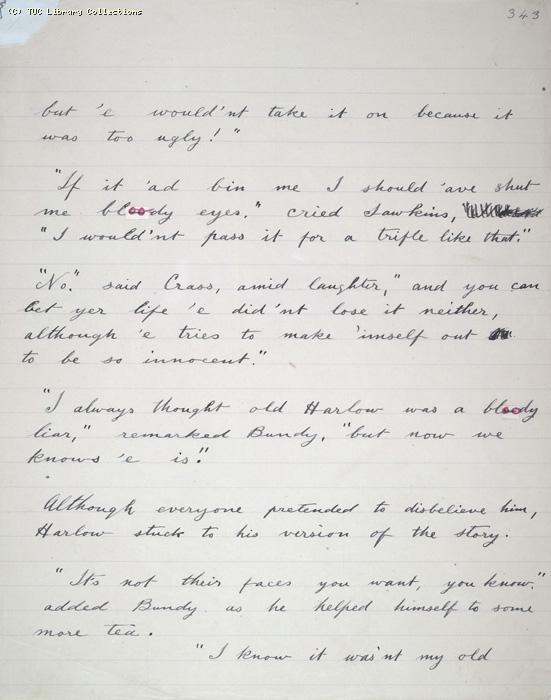 (C) TUC Library Collections
343
but 'e would'nt take it on because it
was too ugly!"
"If it 'ad bin me I should 'ave shut
me bloody eyes." cried Sawkins,
"I would'nt pass it for a trifle like that."
"No." said Crass, amid laughter," and you can
bet yer life 'e did'nt lose it neither,
although 'e tries to make 'imself out
to be so innocent."
"I always thought old Harlow was a bloody
liar," remarked Bundy, "but now we
knows 'e is."
Although everyone pretended to disbelieve him,
Harlow stuck to his version of the story.
"Its not their faces you want, you know."
added Bundy as he helped himself to some
more tea.
"I know it was'nt my old